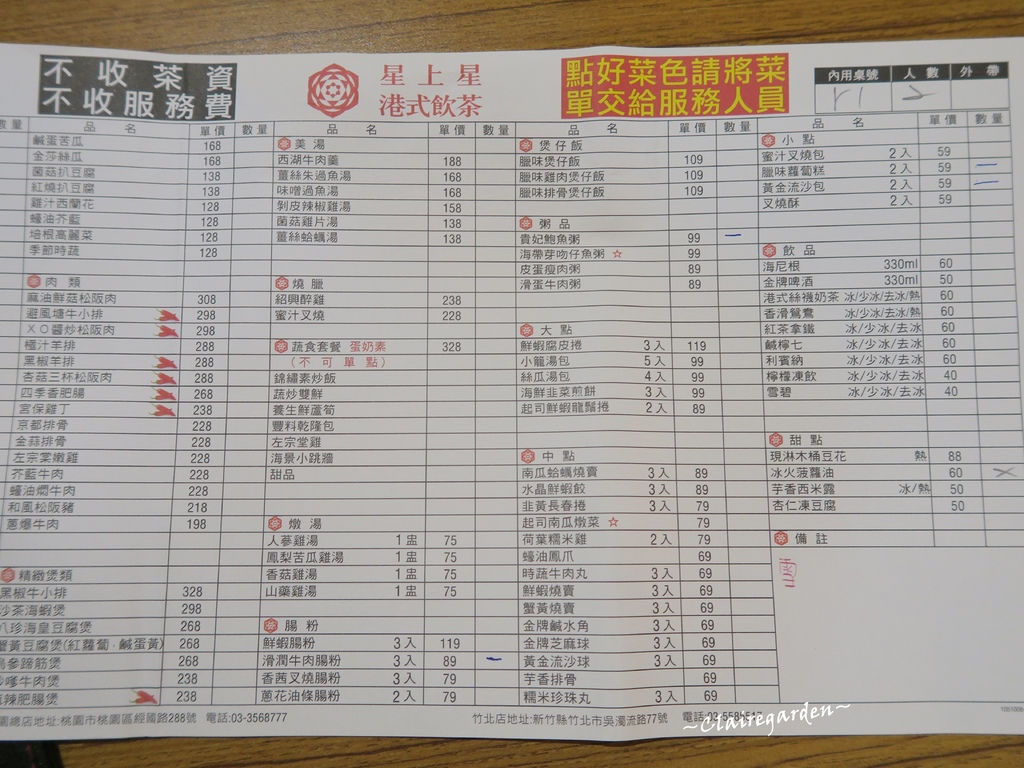 不收茶資
不收服務費
星上星
港式飲茶
點好菜色請將菜
單交給服務人員
內用桌號 人數 外帶
數量 品名 單價 數量 品名 單價 數量 品名 單價 數量 品名 單價 數量
鹹蛋苦瓜 168
金莎絲瓜 168
菌菇扒豆腐 138
紅燒扒豆腐 138
雞汁西蘭花 128
蠔油芥藍 128
培根高麗菜 128
季節時蔬 128
肉類
麻油鮮菇松阪肉 308
避風塘牛小排 298
XO醬炒松阪肉 298
極汁羊排 288
黑椒羊排 288
杏菇三杯松阪肉 288
四季香肥腸 268
宮保雞丁 238
京都排骨 228
金蒜排骨 228
左宗棠嫩雞 228
芥藍牛肉 228
蠔油燜牛肉 228
和風松阪豬 218
蔥爆牛肉 198
精緻煲類
黑椒牛小排 328
沙茶海蝦煲 298
八珍海皇豆腐煲 268
蟹黃豆腐煲(紅蘿蔔.鹹蛋黃) 268
烏參蹄筋煲 268
沙嗲牛肉煲 238
麻辣肥腸煲 238
美湯
西湖牛肉羹 188
薑絲朱過魚湯 168
味噌過魚湯 168
剝皮辣椒雞湯 158
菌菇雞片湯 138
薑絲蛤蠣湯 138
燒臘
紹興醉雞 238
蜜汁叉燒 228
蔬食套餐 蛋奶素 328
(不可單點)
錦繡素炒飯
蔬炒雙鮮
養生鮮蘆筍
豐料乾隆包
左宗堂雞
海景小跳牆
甜品
燉湯
人蔘雞湯 1盅 75
鳳梨苦瓜雞湯 1盅 75
香菇雞湯 1盅 75
山藥雞湯 1盅 75
腸粉
鮮蝦腸粉 3入 119
滑潤牛肉腸粉 3入 89
香茜叉燒腸粉 3入 79
蔥花油條腸粉 2入 79
煲仔飯
臘味煲仔飯 109
臘味雞肉煲仔飯 109
臘味排骨煲仔飯 109
粥品
貴妃鮑魚粥 99
海帶芽吻仔魚粥 ☆ 99
皮蛋瘦肉粥 89
滑蛋牛肉粥 89
大點
鮮蝦腐皮捲 3入 119
小籠湯包 5入 99
絲瓜湯包 4入 99
海鮮韭菜煎餅 3入 99
起司鮮蝦龍鬚捲 2入 89
中點
南瓜蛤蠣燒賣 3入 89
水晶鮮蝦餃 3入 89
韭黃長春捲 3入 79
起司南瓜燉菜 ☆ 79
荷葉糯米雞 2入 79
蠔油鳳爪 69
時蔬牛肉丸 3入 69
鮮蝦燒賣 3入 69
蟹黃燒賣 3入 69
金牌鹹水角 3入 69
金牌芝麻球 3入 69
黃金流沙球 3入 69
芋香排骨 69
糯米珍珠丸 3入 69
小點
蜜汁叉燒包 2入 59
臘味蘿蔔糕 2入 59
黃金流沙包 2入 59
叉燒酥 2入 59
飲品
海尼根 330ml 60
金牌啤酒 330ml 50
港式絲襪奶茶 冰/少冰/去冰/熱 60
香滑鴛鴦 冰/少冰/去冰/熱 60
紅茶拿鐵 冰/少冰/去冰 60
鹹檸七 冰/少冰/去冰 60
利賓納 冰/少冰/去冰 60
檸檬凍飲 冰/少冰/去冰 40
雪碧 冰/少冰/去冰 40
甜點
現淋木桶豆花 熱 88
冰火菠蘿油 60
芋香西米露 冰/熱 50
杏仁凍豆腐 50
備註
園總店地址:桃園市桃園區經國路288號 電話:03-3568777
竹北店地址:新竹縣竹北市吳濁流路77號 電話:03-
~Clairegarden~